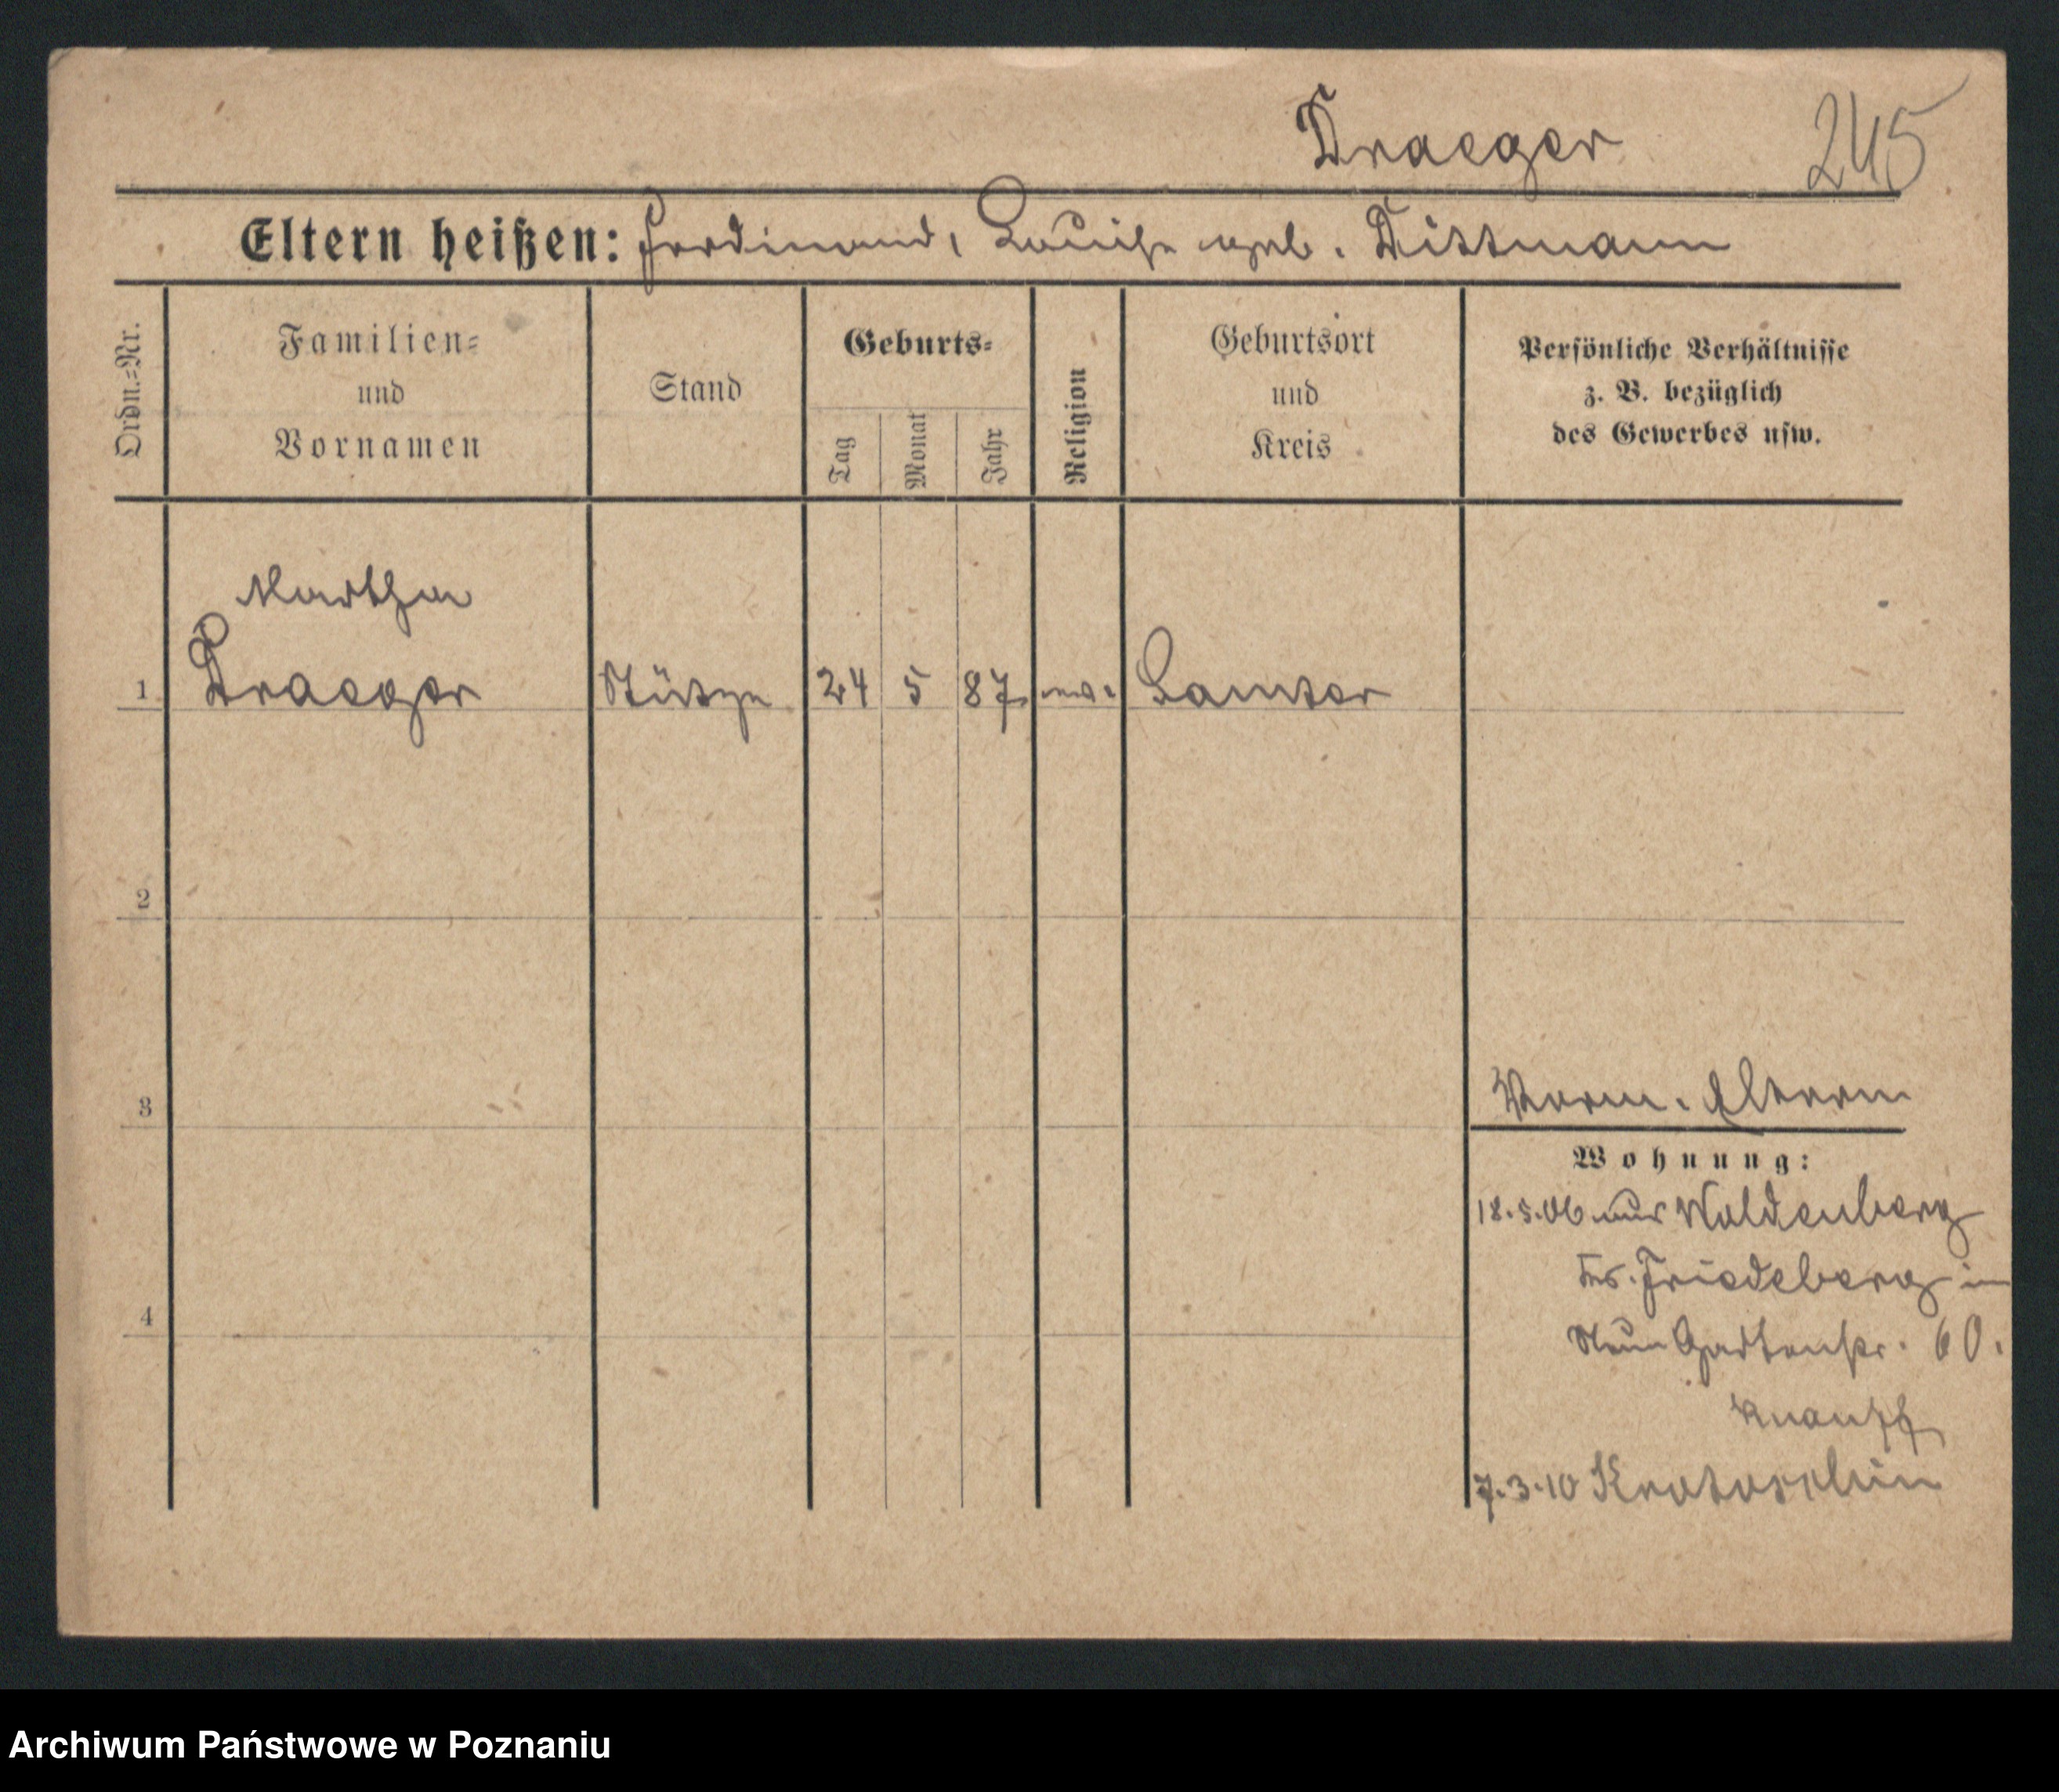 Draeger 245
Eltern heißen: Ferdinand, Louise geb. Dittmann
Ordn.=Nr.
Familien=
und
Vornamen
Stand
Geburts=
Tag
Monat
Jahr
Religion
Geburtsort
und
Kreis
Persönliche Verhältnisse
z. B. bezüglich
des Gewerbes usw.
Martha
1 Draeger Stütze 24 5 87 ev. Lamser
2
3
Vorm. Eltern
Wohnung:
18.5.06 aus Woldenberg
Krs. Friedeberg in
4
Neue Gartenstr. 60.
Knauff
7.3.10 Krotoschin
Archiwum Państwowe w Poznaniu